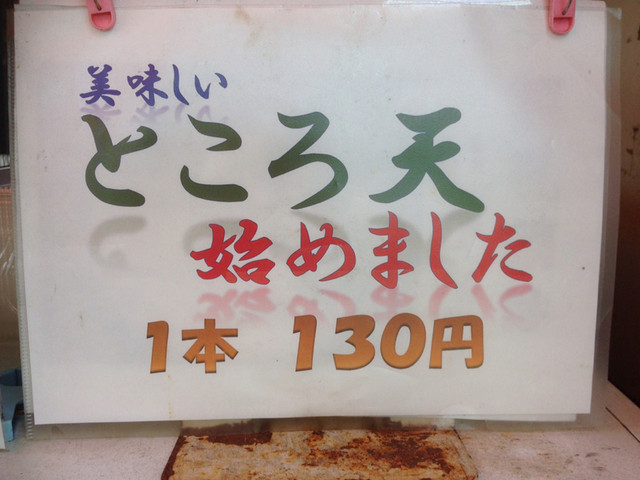 美味しい
ところ天
始めました
1本 130円